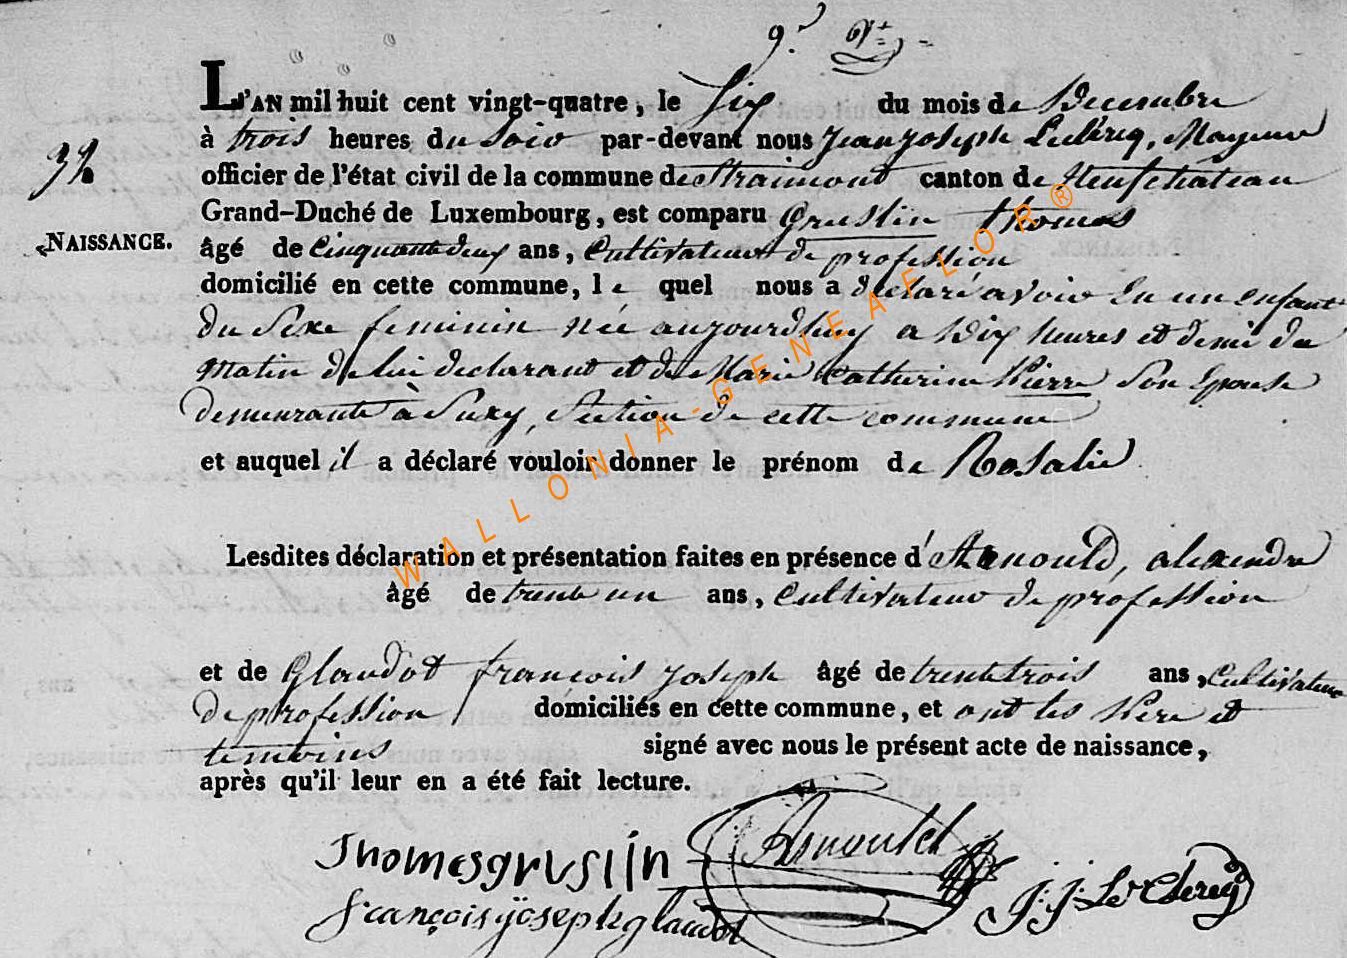 9.r Vt
L'AN mil huit cent vingt-quatre, le Six du mois de Decembre
à trois heures du Soir par-devant nous Jean Joseph Leclercq, Mayeur
officier de l'état civil de la commune de Straimont canton de Neufchateau
Grand-Duché de Luxembourg, est comparu Gruslin Thomas
NAISSANCE.
âgé de Cinquante deux ans, Cultivateur de profession
domicilié en cette commune, le quel nous a declaré avoir Eu un enfant
du Sexe feminin née aujourdhuy a Dix heures et demi du
matin de lui declarant et de Marie Catherine Pierre Son Epouse
demeurante à Suxy, Section de cette commune
et auquel il a déclaré vouloir donner le prénom de Rosalie
Lesdites déclaration et présentation faites en présence d'Arnould, alexandre
âgé de trente un ans, Cultivateur de profession
et de Glaudot françois Joseph âgé de trente trois ans, Cultivateur
de profession domiciliés en cette commune, et ont les Pere et
temoins signé avec nous le présent acte de naissance,
après qu'il leur en a été fait lecture.
Thomas gruslin Arnould J: J: Le Clercq
françois joseph glaudot
WALLONIA-GENEAFLOR®